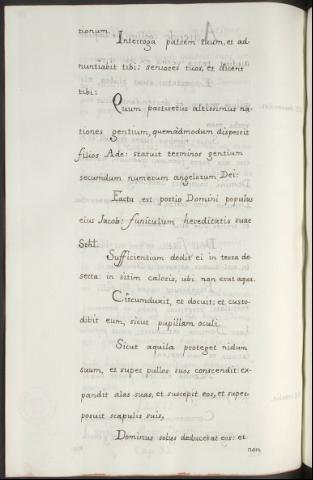 tionum.
Interroga patrem tuum, et ad-
nuntiabit tibi: seniores tuos, et dicent
tibi:
Quum partiretur altissimus na-
tiones gentium, quemadmodum dispersit
filios Ade: statuit terminos gentium
secundum numerum angelorum Dei:
Facta est portio Domini populus
eius Jacob: funiculum hereditatis suae
Sufficientiam dedit ei in terra de-
serta: in sitim caloris, ubi non erat aqua.
Circumduxit, et docuit: et custo-
dibit eum, sicut pupillam oculi.
Sicut aquila proteget nidum
suum, et super pullos suos conscendit: ex-
pandit alas suas, et suscepit eos, et super-
posuit scapulis suis,
Dominus solus deducebat eos: et
non